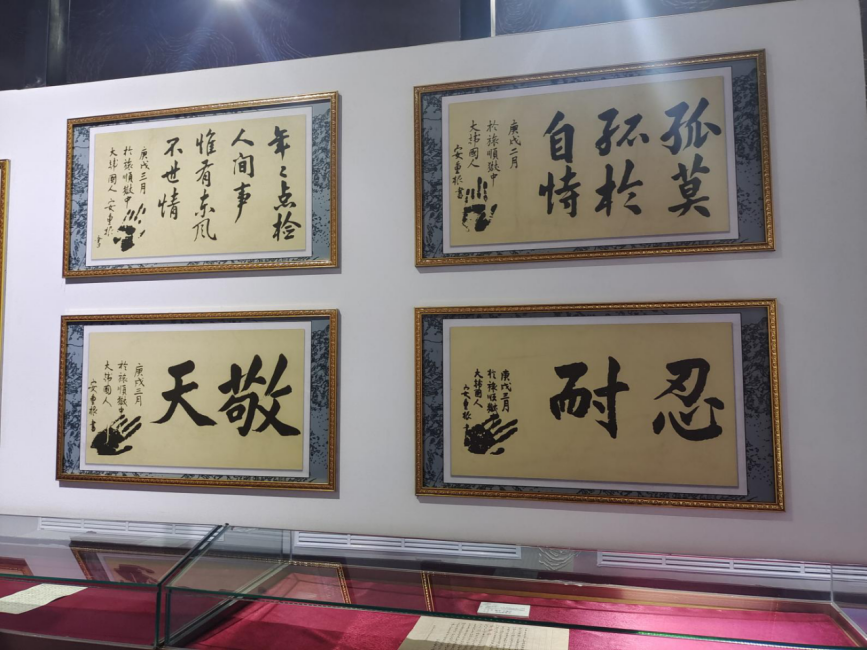 年々点检
人间事
惟有东风
不世情
庚戌三月
於旅顺獄中
大韩國人 安重根 書
孤莫
孤於
自恃
庚戌二月
於旅順獄中
大韩國人
安重根書
敬天
庚戌三月
於旅順獄中
大韩國人
安重根書
忍耐
庚戌三月
於旅順獄
大韩國人
安重根